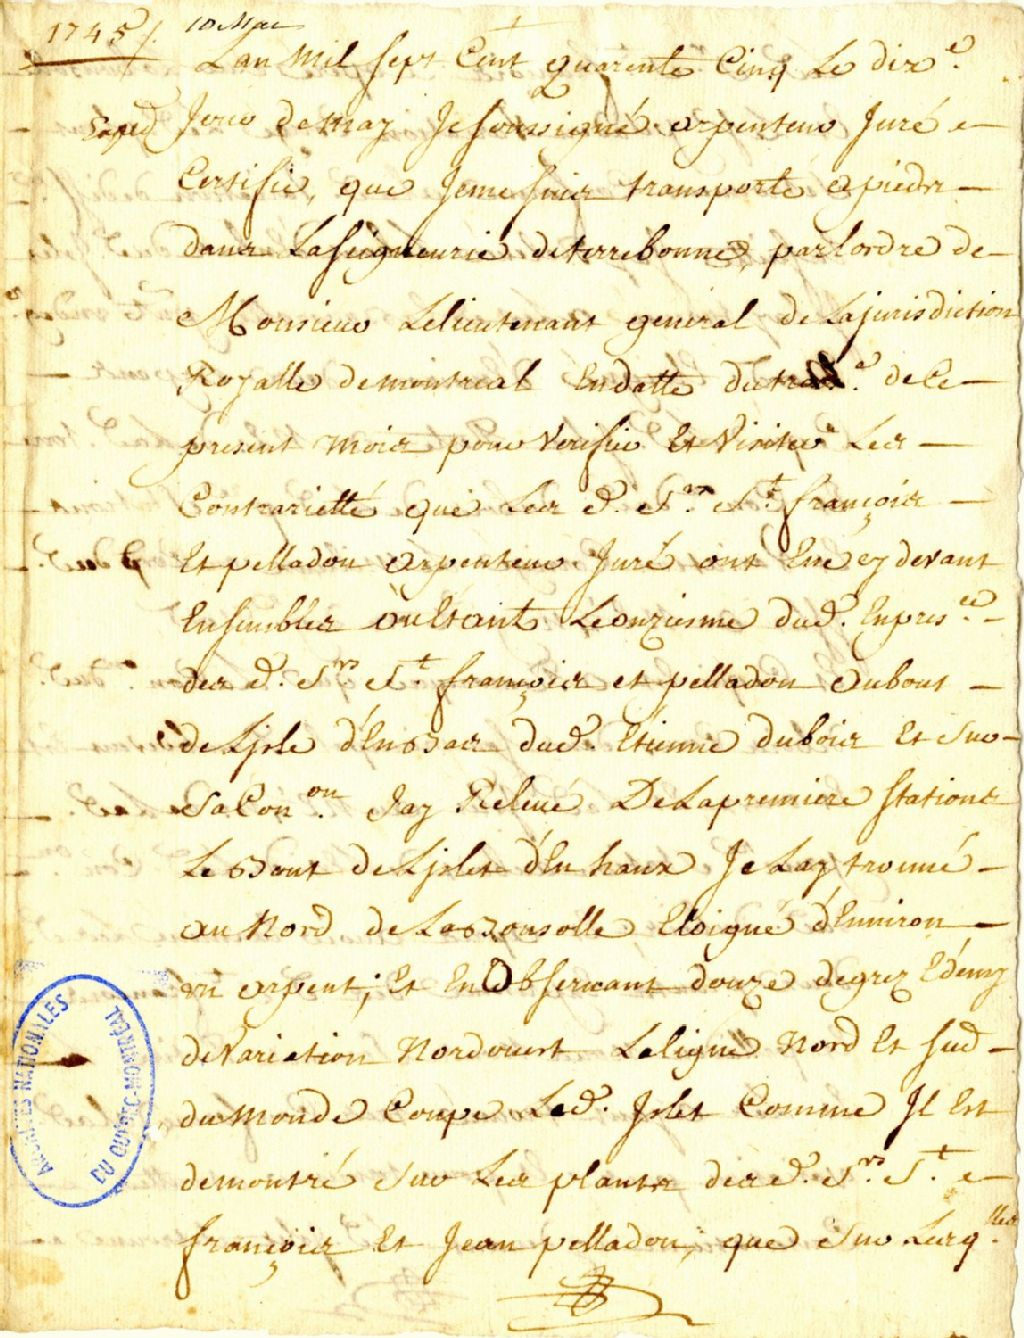 1745 /. 10 Mai
Lan Mil Sept Cent quarente Cinq Le dix.e
Jour de may Je soussigné arpenteur Juré
Certifie, que Jeme suis transporté apieds
dans La seigneurie deterrebonne, par lordre de
Monsieur Lelieutenant general de La jurisdiction
Royalle demontreal En datte du de Ce
present mois pour Verifier Et Visiter Les
Contrarietté que Les d. Srs St. françois
Et pelladou arpenteur Juré ont Eue cy devant
Ensembles Leonziesme dud. Enpres.ce
des d. Srs St. françois et pelladou aubout
de Lisle d'En bas dud. Etienne dubois Et Sur
Sa Con.on Jay Relevé De La premiere Stations
Le bout de Lislet d'En haux Je Lay trouvé
au Nord de La boussolle, Eloigné d'Environ
un arpent; Et En Observant douze degrez Edemy
de Variation Nordouest La ligne Nord Et sud
du monde Coupe Led. Islet Comme Il Est
demontré Sur Les plants des d. Srs St.
françois Et Jean pelladou, que Sur Lesq.lles
ARCHIVES NATIONALES
DU QUÉBEC-MONTRÉAL